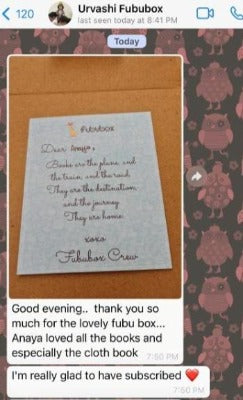 120
Urvashi Fububox
last seen today at 8:41 PM
Today
fububox
Dear Anaya,
Books are the plane, and
the train, and the road.
They are the destination,
and the journey.
They are home.
xoxo
Fububox Crew
Good evening.. thank you so
much for the lovely fubu box...
Anaya loved all the books and
especially the cloth book
7:50 PM
I'm really glad to have subscribed ❤️
7:50 PM